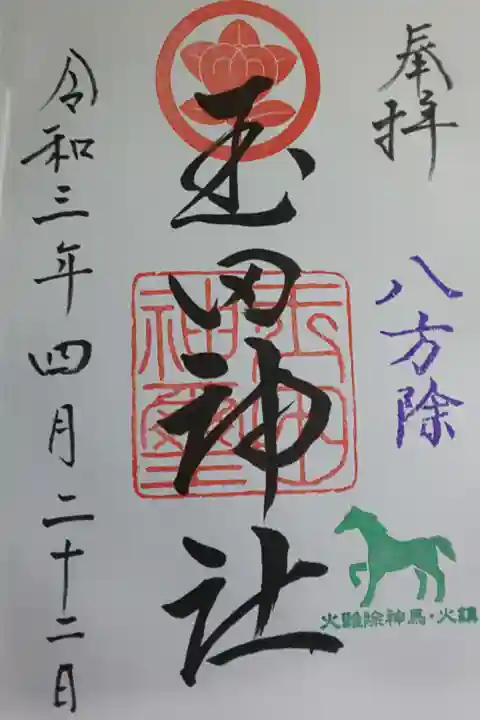 奉拝
八方除
玉田神社
玉田神璽
火難除神馬・火鎮
令和三年四月二十二日